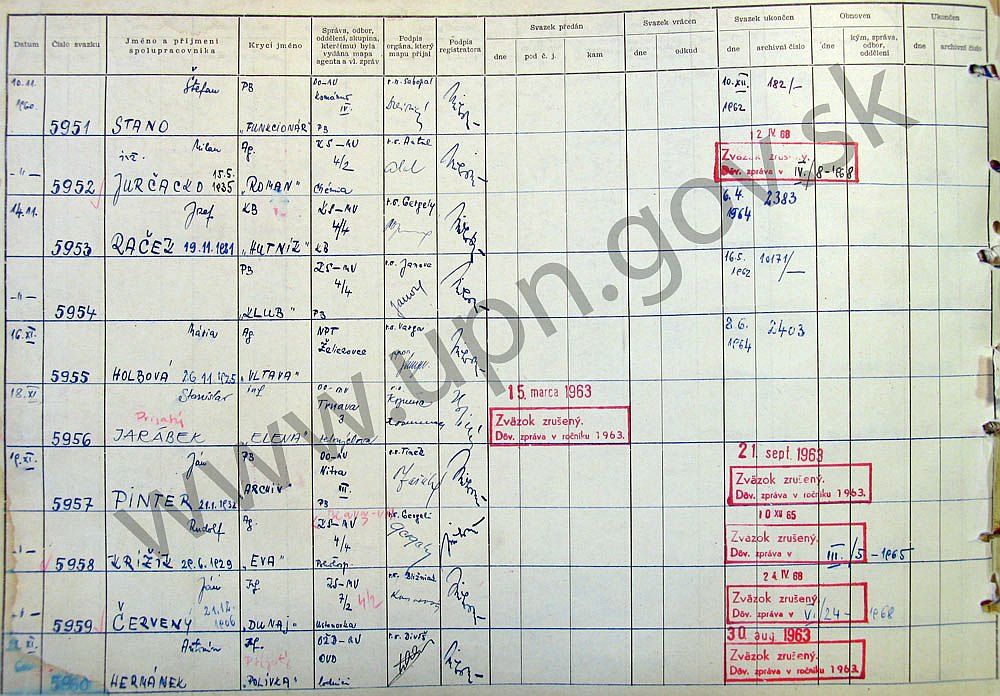 Datum
Číslo svazku
Jméno a příjmení
spolupracovníka
Krycí jméno
Správa, odbor,
oddělení, skupina,
které(mu) byla
vydána mapa
agenta a vl. zpráv
Podpis
orgána, který
mapu přijal
Podpis
registrátora
Svazek předán
dne
pod č. j.
kam
Svazek vrácen
dne
odkud
Svazek ukončen
dne
archivní číslo
Obnoven
dne
kým, správa,
odbor,
oddělení
Ukončen
dne
archivní číslo
10.11.
1960
5951
Štefan
STANO
PB
„FUNKCIONÁR"
OO-MV
Komárno
IV.
PB
10.XII.
1962
182/-
-"-
5952
inž. Milan
JURČACKO 15.5.
1935
Ag.
„ROMAN"
KS-MV
4/2
Chémia
12 IV. 68
Zväzok zrušený.
Dôv. zpráva v IV./8-1968
14.11.
5953
Jozef
RAČEK 19.11.1931
KB
„HUTNÍK"
KS-MV
4/4
KB
r.s. Gergely
6.4.
1964
2383
-"-
5954
PB
„KLUB"
KS-MV
4/4
PB
r.s. Janova
16.5.
1962
10171/-
16.XI.
5955
Mária
HOLBOVÁ 26.11.1925
Ag.
„VLTAVA"
NPT
Želiezovce
r.s. Varga
8.6.
1964
2403
18.XI.
5956
Stanislav
Prijatý
JARÁBEK
inf
„ELENA"
OO-MV
Trnava
3
15. marca 1963
Zväzok zrušený.
Dôv. zpráva v ročníku 1963.
19.XI.
5957
Ján
PINTER 21.1.1932
PB
ARCHÍV"
OO-MV
Nitra
III.
PB
21. sept. 1963
Zväzok zrušený.
Dôv. zpráva v ročníku 1963.
-"-
5958
Rudolf
KRÍŽIK 29.6.1929
Ag.
„EVA"
KS-MV
4/4
10 XII 65
Zväzok zrušený.
Dôv. zpráva v III./5-1965
-"-
5959
Ján
ČERVENÝ 21.12.
1906
Ag.
„DUNAJ"
KS-MV
7/2 4/2
24 IV. 68
Zväzok zrušený.
Dôv. zpráva v V./24-1968
5960
Antonín
HERMÁNEK
„POLÍVKA"
OŽD-MV
OVD
r.s. Diviš
30. aug. 1963
Zväzok zrušený.
Dôv. zpráva v ročníku 1963.
www.upn.gov.sk